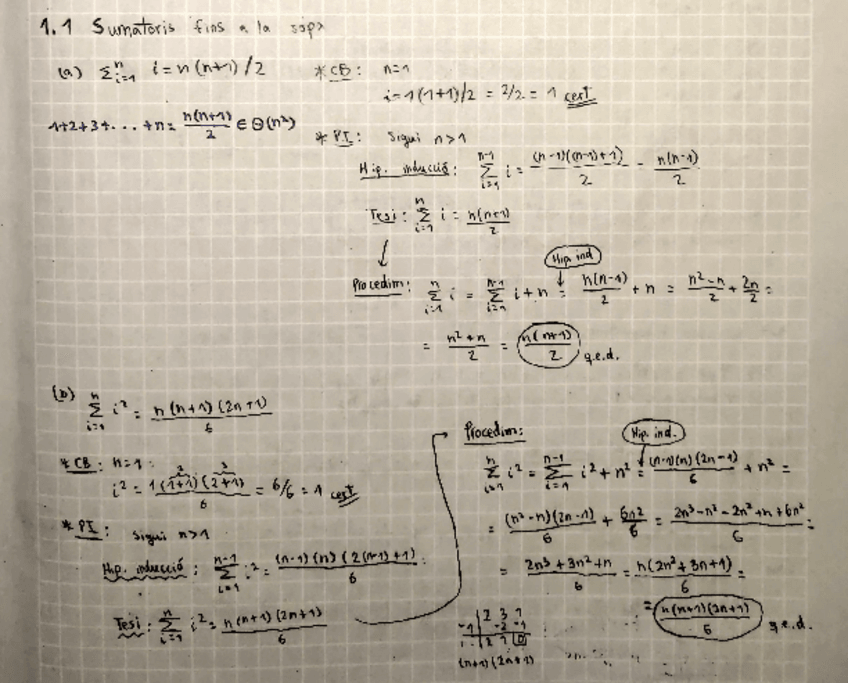 1.1 Sumatoris fins a la sopa
(a) Σⁿᵢ₌₁ i = n(n+1)/2
1+2+3+...+n = n(n+1)/2 ∈ Θ(n²)
* CB: n=1
i=1(1+1)/2 = 2/2 = 1 cert
* PI: Sigui n>1
Hip. inducció: Σⁿ⁻¹ᵢ₌₁ i = (n-1)((n-1)+1)/2 = n(n-1)/2
Tesi: Σⁿᵢ₌₁ i = n(n+1)/2
Hip. ind
Procedim: Σⁿᵢ₌₁ i = Σⁿ⁻¹ᵢ₌₁ i + n = n(n-1)/2 + n = n²-n/2 + 2n/2 =
= n²+n/2 = n(n+1)/2 q.e.d.
(b) Σⁿᵢ₌₁ i² = n(n+1)(2n+1)/6
* CB: n=1:
i² = 1(1+1)(2+1)/6 = 6/6 = 1 cert
2 3
* PI: Sigui n>1
Hip. inducció: Σⁿ⁻¹ᵢ₌₁ i² = (n-1)(n)(2(n-1)+1)/6
Tesi: Σⁿᵢ₌₁ i² = n(n+1)(2n+1)/6
Procedim:
Hip. ind.
Σⁿᵢ₌₁ i² = Σⁿ⁻¹ᵢ₌₁ i² + n² = (n-1)(n)(2n-1)/6 + n² =
= (n²-n)(2n-1)/6 + 6n²/6 = 2n³-n²-2n²+n+6n²/6 =
= 2n³+3n²+n/6 = n(2n²+3n+1)/6 =
= n(n+1)(2n+1)/6 q.e.d.
2 3 1
-1 -2 -1
2 1 0
(n+1)(2n+1)